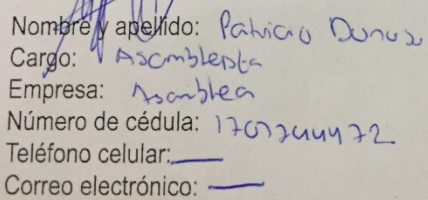 Nombre y apellido: Patricio Donoso
Cargo: Asambleista
Empresa: Asamblea
Número de cédula:
Teléfono celular: —
Correo electrónico: —